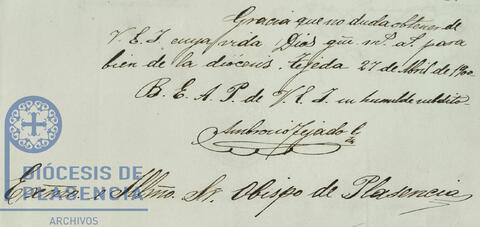 Gracia que no duda obtener de
V. E. I. cuya vida Dios gue. ms. as. para
bien de la diócesis. Tejeda 27 de Abril de 1900
B. E. A. P. de V. E. I. su humilde subdito
Ambrosio Tejado
Excmo. e Illmo. Sr. Obispo de Plasencia
DIÓCESIS DE
PLASENCIA
ARCHIVOS